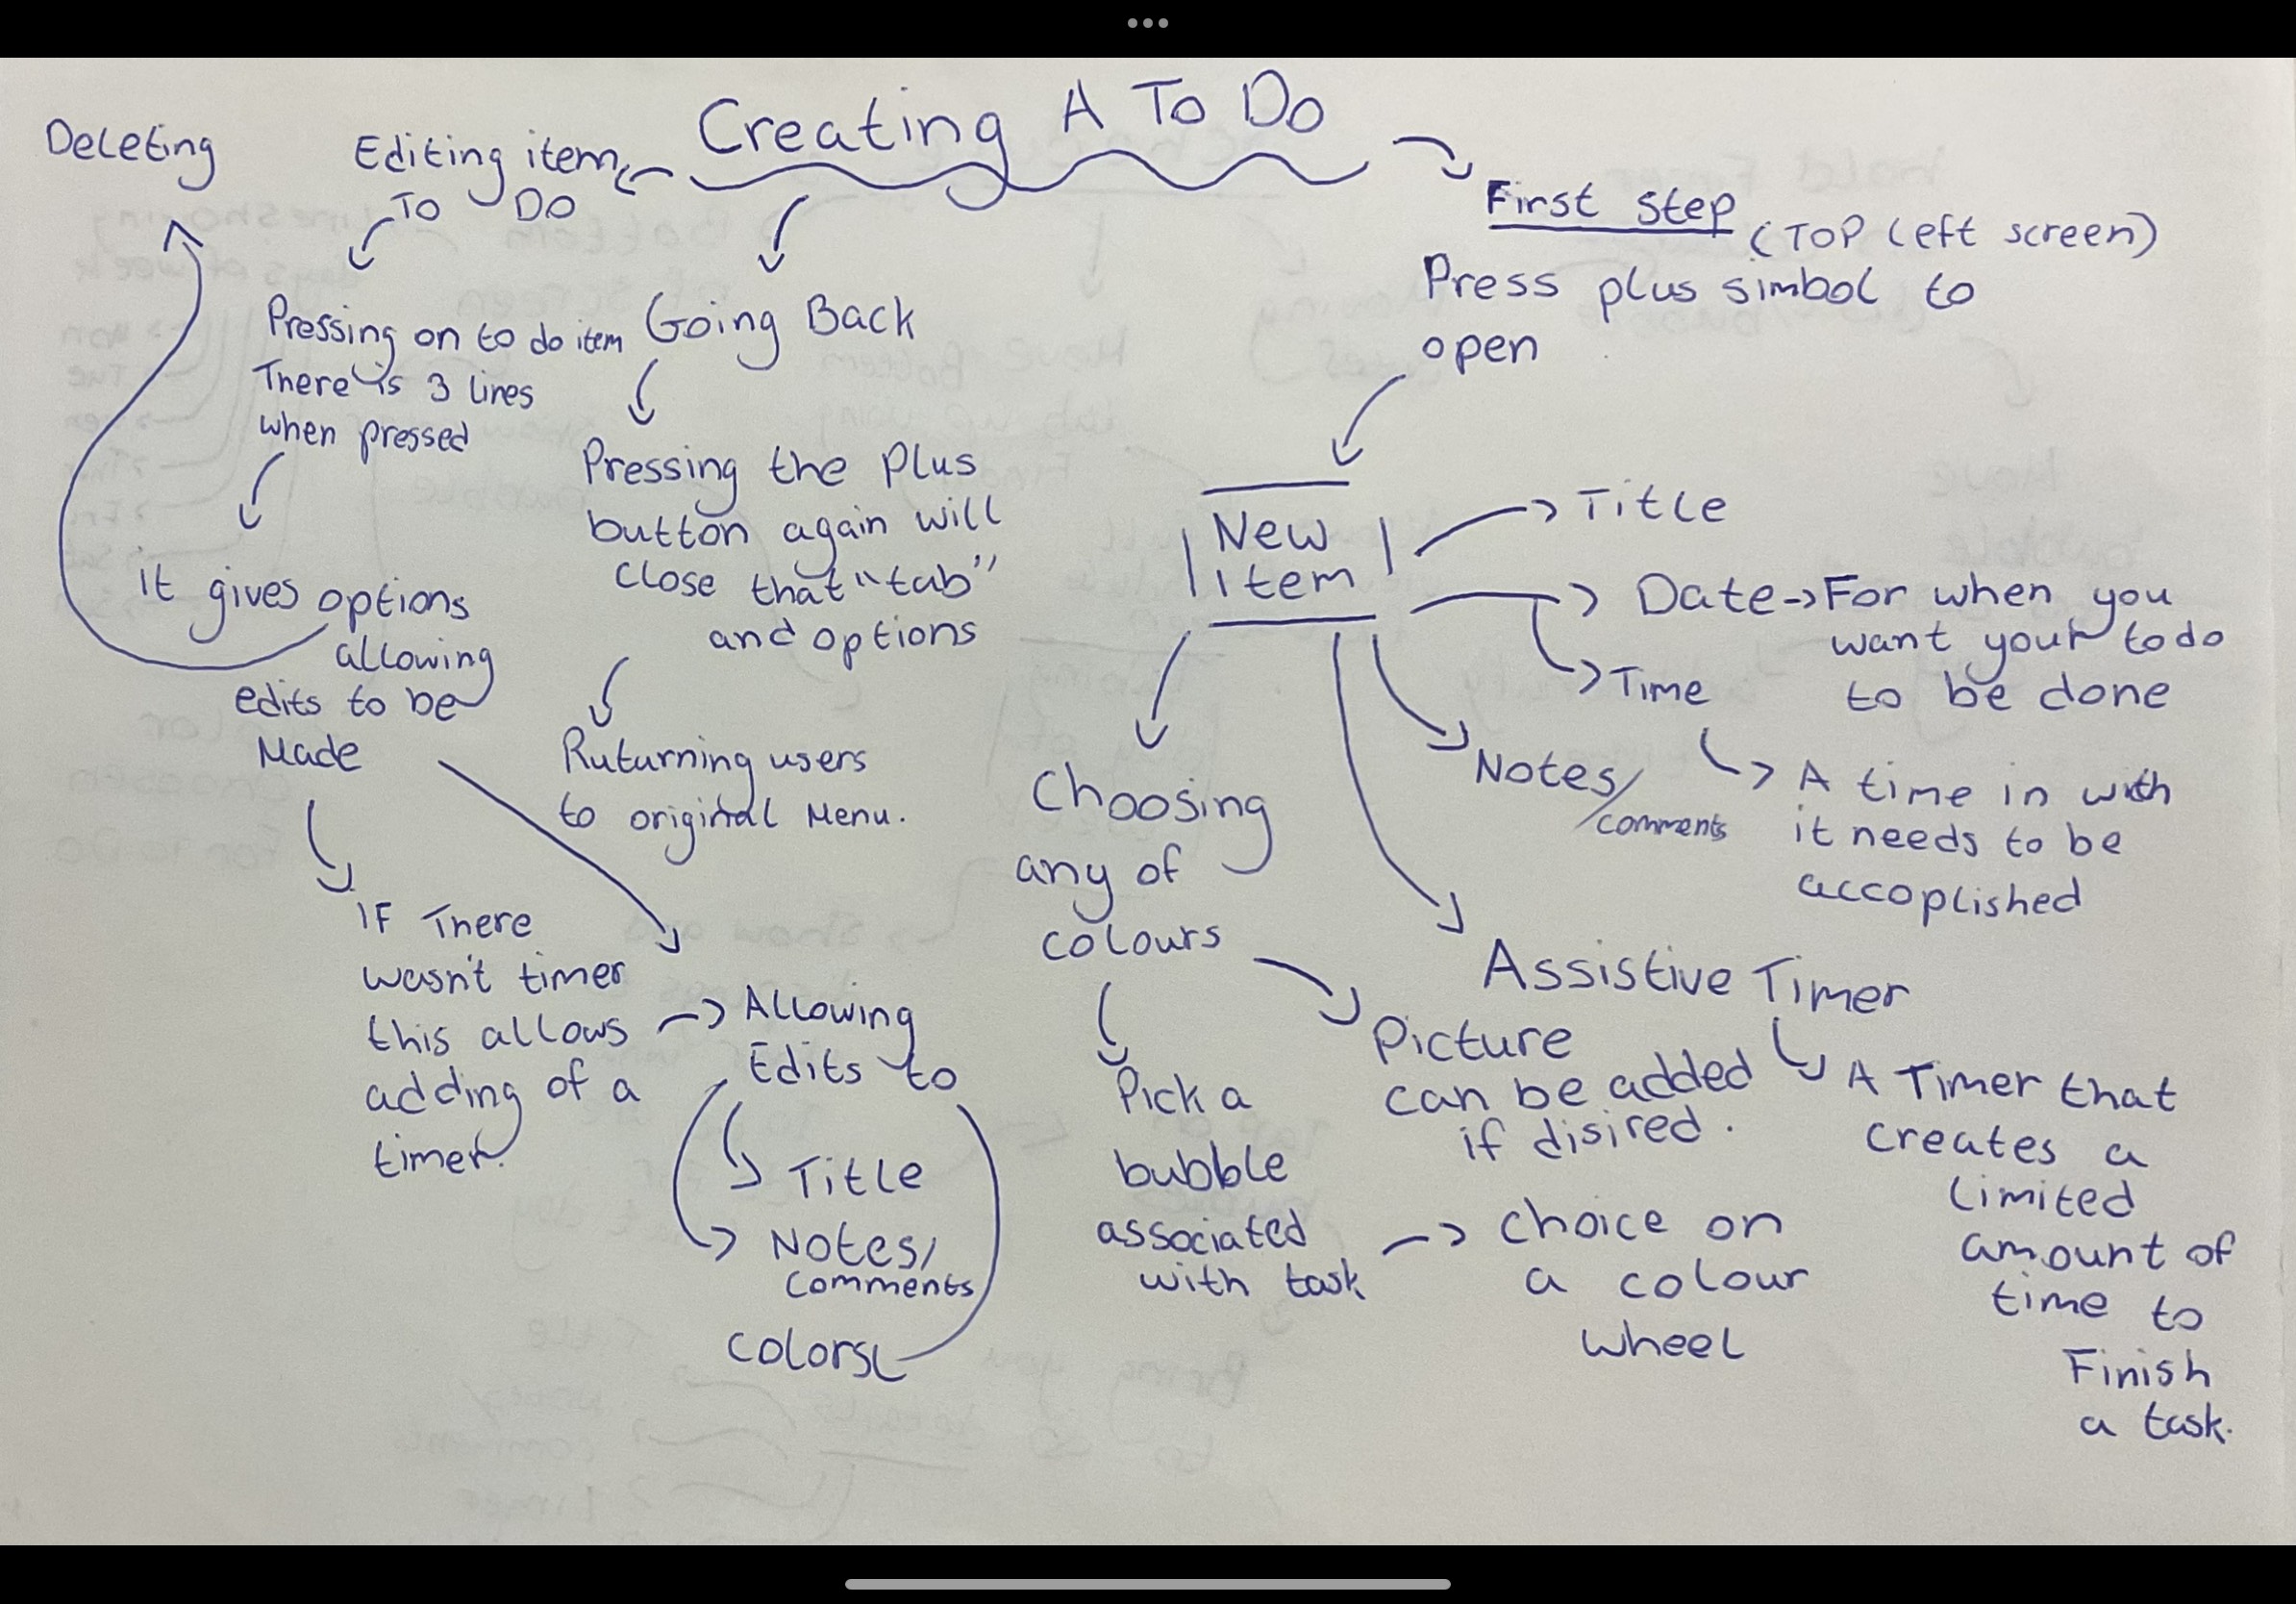 Creating A To Do
Deleting
Editing item
To Do
Pressing on to do item
There is 3 lines
when pressed
it gives options
allowing
edits to be
Made
IF There
wasn't timer
this allows
adding of a
timer.
Allowing
Edits to
Title
Notes/
comments
colors
Going Back
Pressing the Plus
button again will
close that "tab"
and options
Ruturning users
to original Menu.
First step (TOP left screen)
Press plus simbol to
open
New
item
Title
Date -> For when you
want your todo
to be done
Time
A time in with
it needs to be
accoplished
Notes/
comments
Assistive Timer
A Timer that
creates a
limited
amount of
time to
Finish
a task.
Choosing
any of
colours
Picture
can be added
if disired.
Pick a
bubble
associated
with task
choice on
a colour
wheel